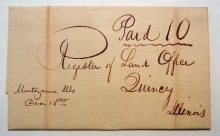 Paid 10
Register of Land Office
Quincy
Illinois
Montezuma Ills
15th